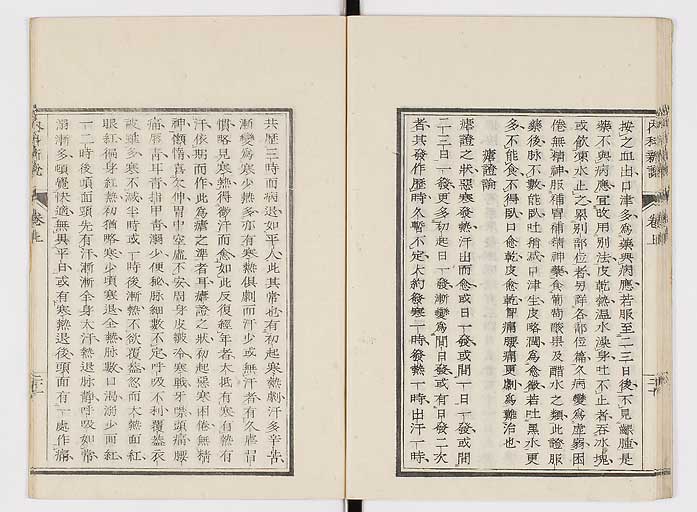 内科新論 卷上
按之血出口津多爲藥與病應若服至二三日後不見鬆腫是
藥不與病應宜改用別法皮乾熱溫水澡身吐不止者吞冰塊
或飲凍水止之累別部位者另詳各部位篇久病變爲虛弱困
倦無精神服補胃補精神藥食葡萄酸果及醋水之類此證服
藥後脉不數能臥吐稍減口津生皮略潤爲愈徵若吐黑水更
多不能食不得臥口愈乾皮愈乾胃痛腰痛更劇爲難治也
瘧證論
瘧證之狀惡寒發熱汗出而愈或日一發或間一日一發或間
二三日一發更多初起日一發漸變爲間日發或有日發二次
者其發作歷時久暫不定大約發寒一時發熱一時出汗一時
共歷三時而病退如平人此其常也有初起寒熱劇汗多辛苦
漸變爲寒少熱多亦有寒熱俱劇而汗少或無汗者有久瘧習
慣略見寒熱得微汗而愈如此反復經年者大抵有寒有熱有
汗依期而作此爲瘧之準者耳瘧證之狀初起惡寒困倦無精
神懶惰喜欠伸胃中空虛不安周身皮皺冷寒戰牙噤頭痛腰
痛唇青耳青指甲青溺少便秘脉細數不定呼吸不利覆蓋衣
被雖多寒不減半時或一時後漸熱不欲覆蓋忽而大熱面紅
眼紅徧身紅熱初猶略寒少頃寒退全熱脉數口渴溺少而紅
一二時後頭面頸先有汗漸漸全身大汗熱退脉靜呼吸如常
溺漸多頓覺快適無異平日或有寒熱退後頭面有一處作痛
內科新論 卷上